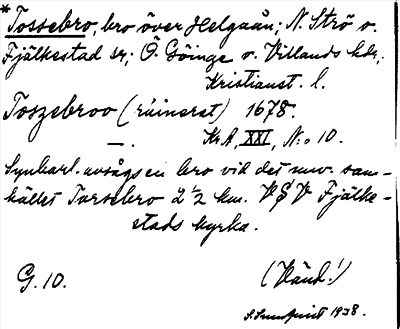 * Tossebro, bro över Helgeån; N. Strö o.
Fjälkestad sr; Ö. Göinge o. Villands hdr;
Kristianst. l.
Toszebroo (ruinerat) 1678.
— . KrA, XXI, N:o 10.
Synbarl. avsågs en bro vid det nuv. sam-
hället Torsebro 2 ½ km. VSV Fjälke-
stads kyrka.
G. 10. (Vänd!)
1938.